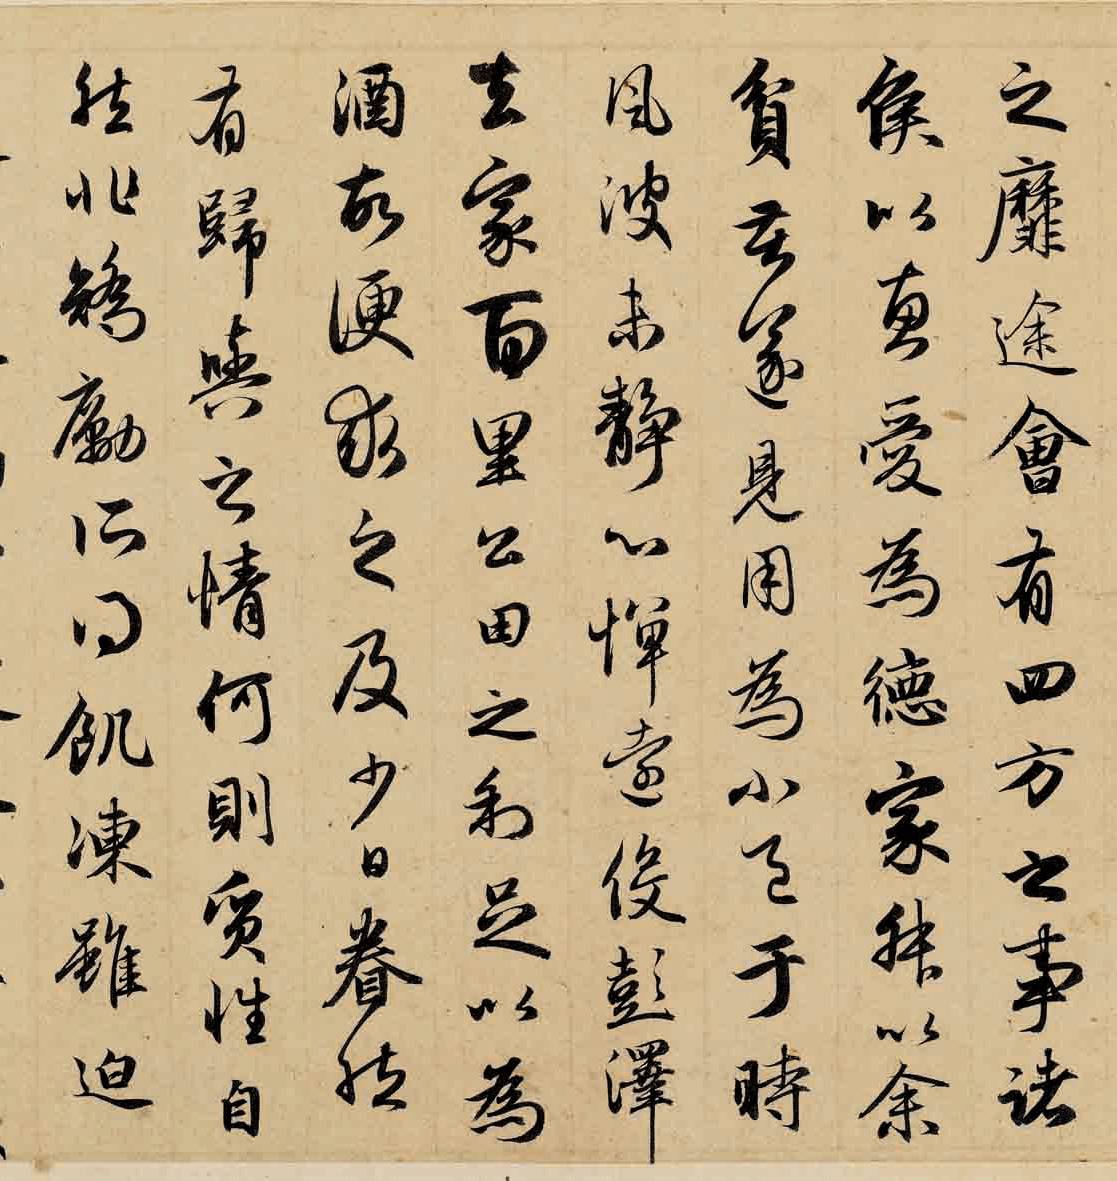 之靡途會有四方之事諸
侯以惠愛為德家叔以余
貧苦遂見用為小邑于時
風波未靜心憚遠役彭澤
去家百里公田之利足以為
酒故便求之及少日眷然
有歸與之情何則質性自
然非矯勵所得飢凍雖迫